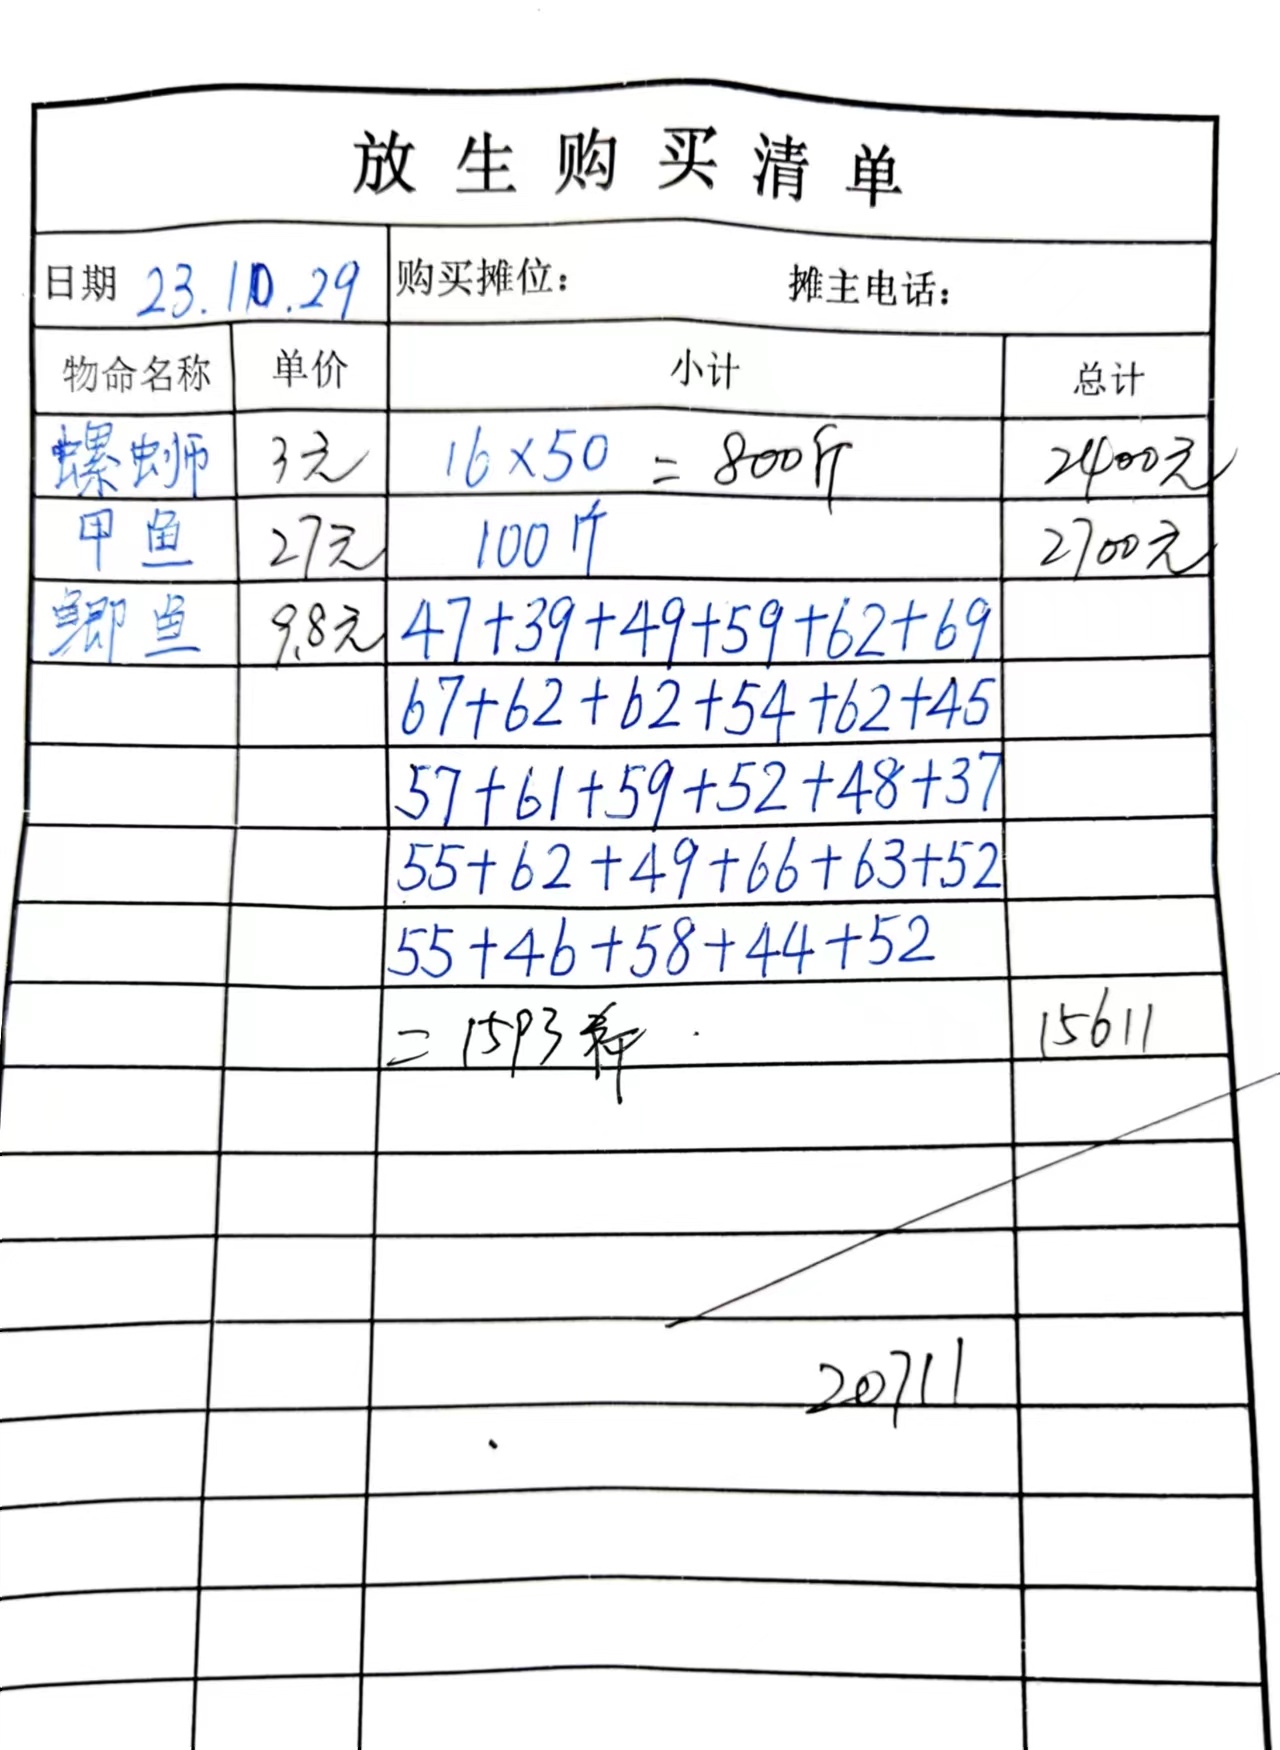 放生购买清单
日期 23.10.29 购买摊位： 摊主电话：
物命名称 单价 小计 总计
螺蛳 3元 16×50 = 800斤 2400元
甲鱼 27元 100斤 2700元
鲫鱼 9.8元 47+39+49+59+62+69
67+62+62+54+62+45
57+61+59+52+48+37
55+62+49+66+63+52
55+46+58+44+52
= 1593斤 15611
20711